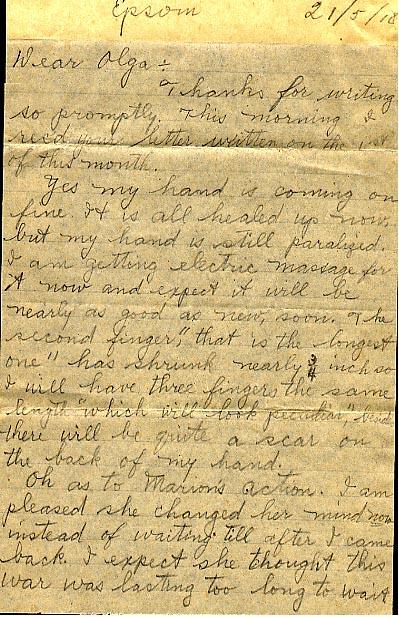 Epsom 21/5/18
Dear Olga :-
Thanks for writing
so promptly. This morning I
recd your letter written on the 1st
of this month.
Yes my hand is coming on
fine. It is all healed up now,
but my hand is still paralized.
I am getting electric massage for
it now and expect it will be
nearly as good as new, soon. The
second finger, "that is the longest
one" has shrunk nearly 3/4 inch so
I will have three fingers the same
length "which will look peculiar,"
there will be quite a scar on
the back of my hand.
Oh as to Marions action. I am
pleased she changed her mind now
instead of waiting till after I came
back. I expect she thought this
war was lasting too long to wait